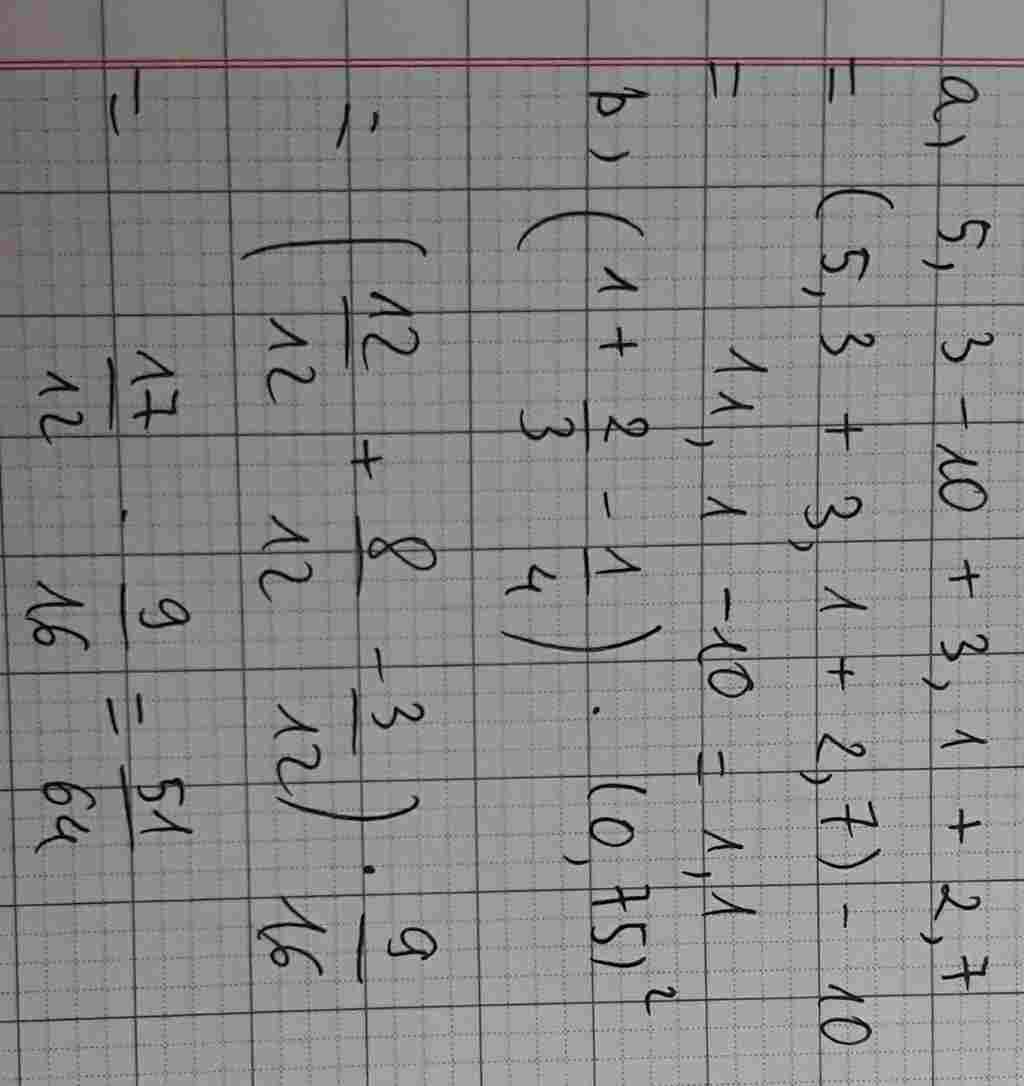 a, 5,3 - 10 + 3,1 + 2,7
= (5,3 + 3,1 + 2,7) - 10
= 11,1 - 10 = 1,1
b, (1 + 2/3 - 1/4) . (0,75)²
= (12/12 + 8/12 - 3/12) . 9/16
= 17/12 . 9/16 = 51/64